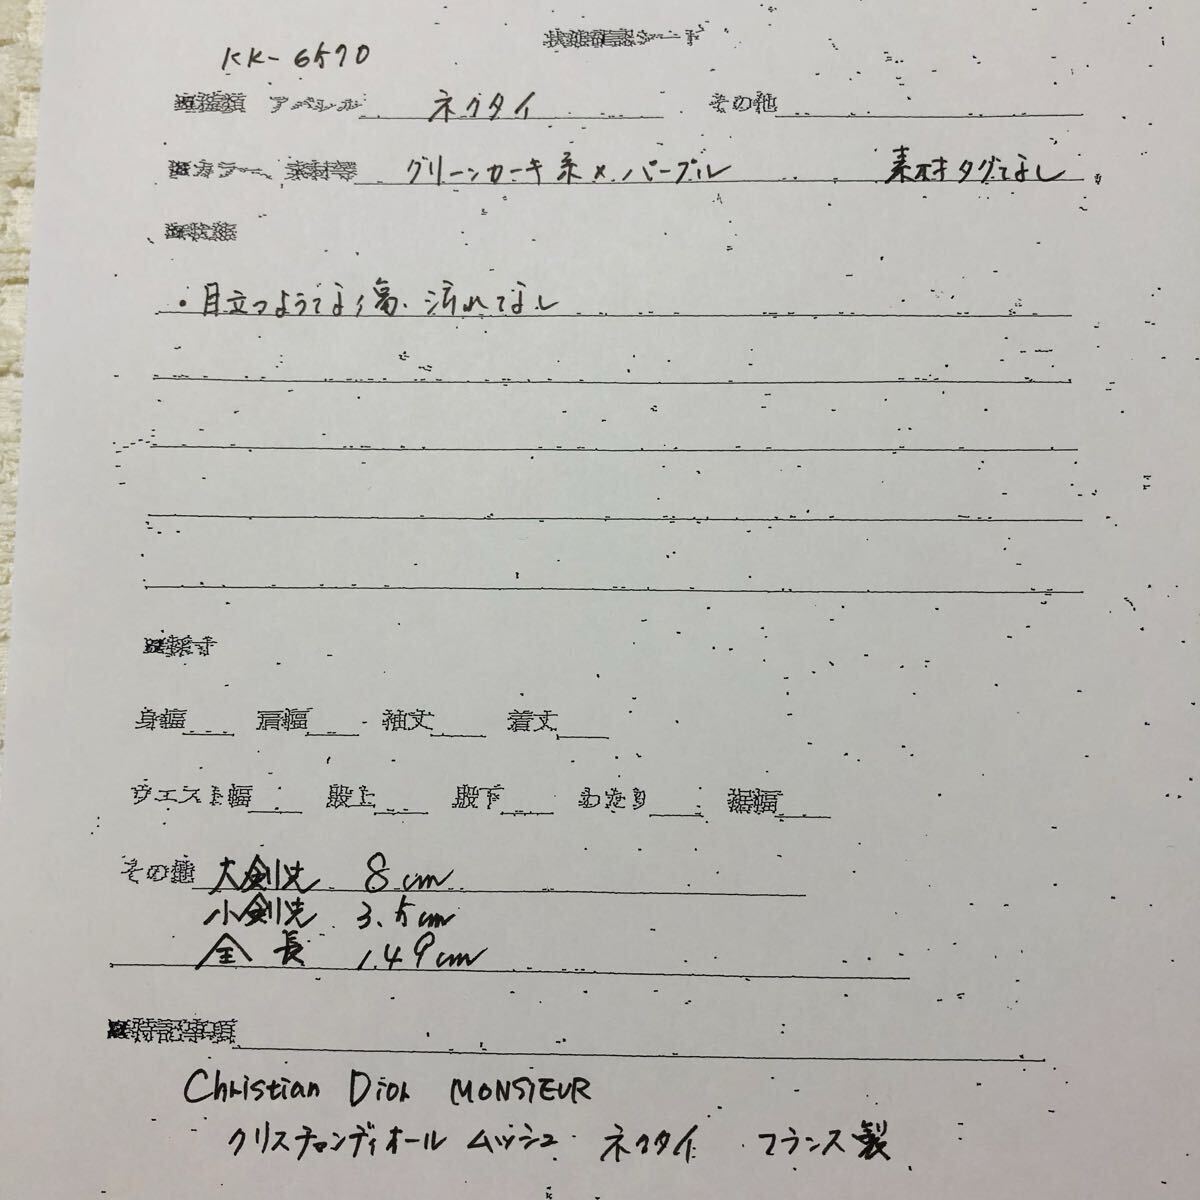 状態確認シート
KK-6570
■種類 アパレル ネクタイ その他
■カラー、素材等 グリーンカーキ系×パープル 素材タグなし
■状態
・目立つような傷、汚れなし
■採寸
身幅 肩幅 袖丈 着丈
ウエスト幅 股上 股下 わたり 裾幅
その他 大剣先 8cm
小剣先 3.5cm
全長 149cm
■特記事項
Christian Dior MONSIEUR
クリスチャンディオール ムッシュ ネクタイ フランス製